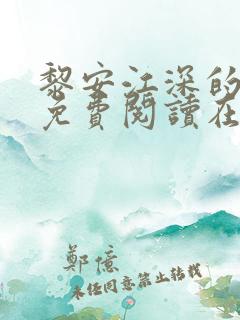 黎安江深的
免費閱讀在
鄭億
未經同意禁止轉載